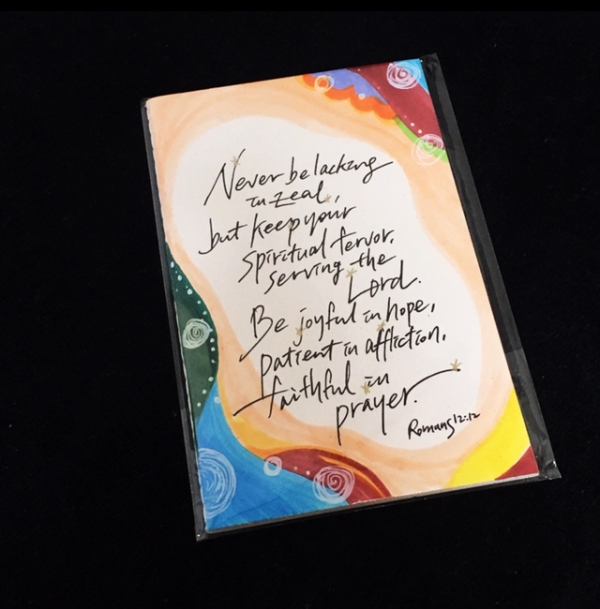 Never be lacking
in zeal,
but keep your
spiritual fervor,
serving the
Lord.
Be joyful in hope,
patient in affliction,
faithful in
prayer.
Romans 12:12